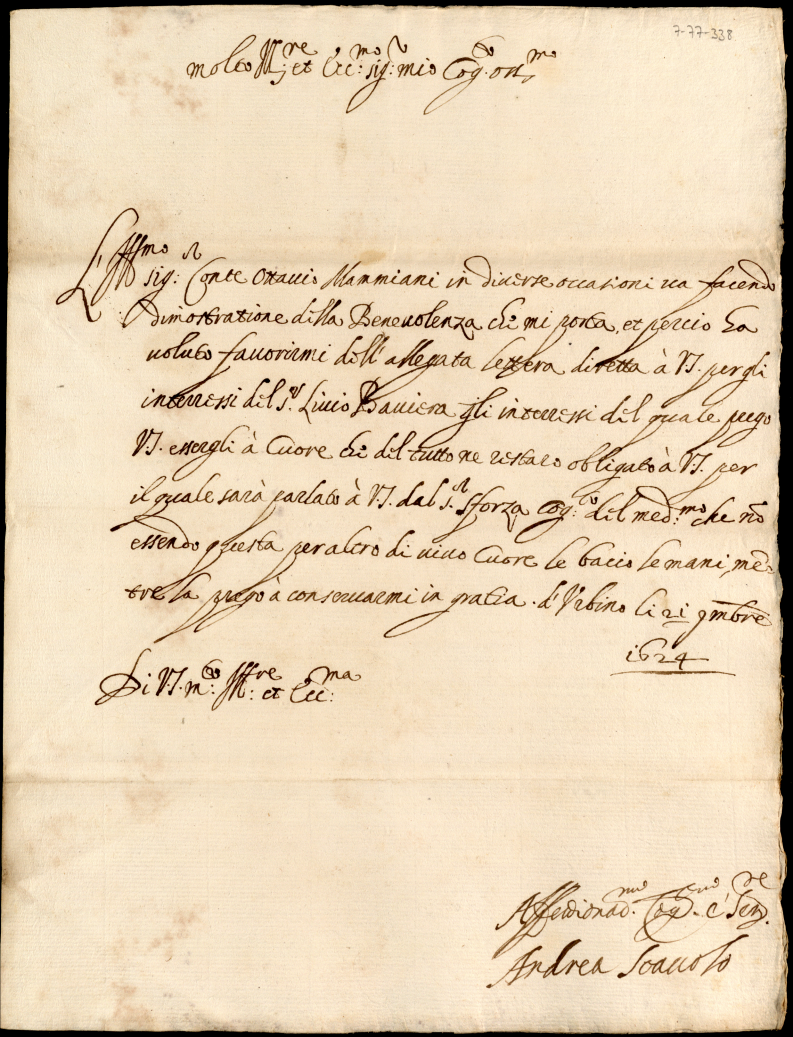 7-77-338
molto Ill:re et Ecc:mo sig:r mio Cog:to oss:mo
L'Ill:mo sig:r Conte Ottavio Mammiani in diverse occasioni va facendo
dimostratione della Benevolenza che mi porta, et perciò ha
voluto favorirmi dell'allegata lettera diretta à VS. per gli
interessi del S.r Livio Baviera gli interessi del quale prego
VS. essergli à Cuore che del tutto ne restarò obligato à VS. per
il quale sarà parlato à VS. dal S.r Sforza Cog:to del med:mo che nõ
essendo questa per altro di vivo Cuore le bacio le mani, mẽ
tre la prego à conservarmi in gratia. d'Urbino li 21 9mbre
1624
Di VS. m:to Ill:re et Ecc:ma
Affectionat.mo Cog. e Ser.re
Andrea